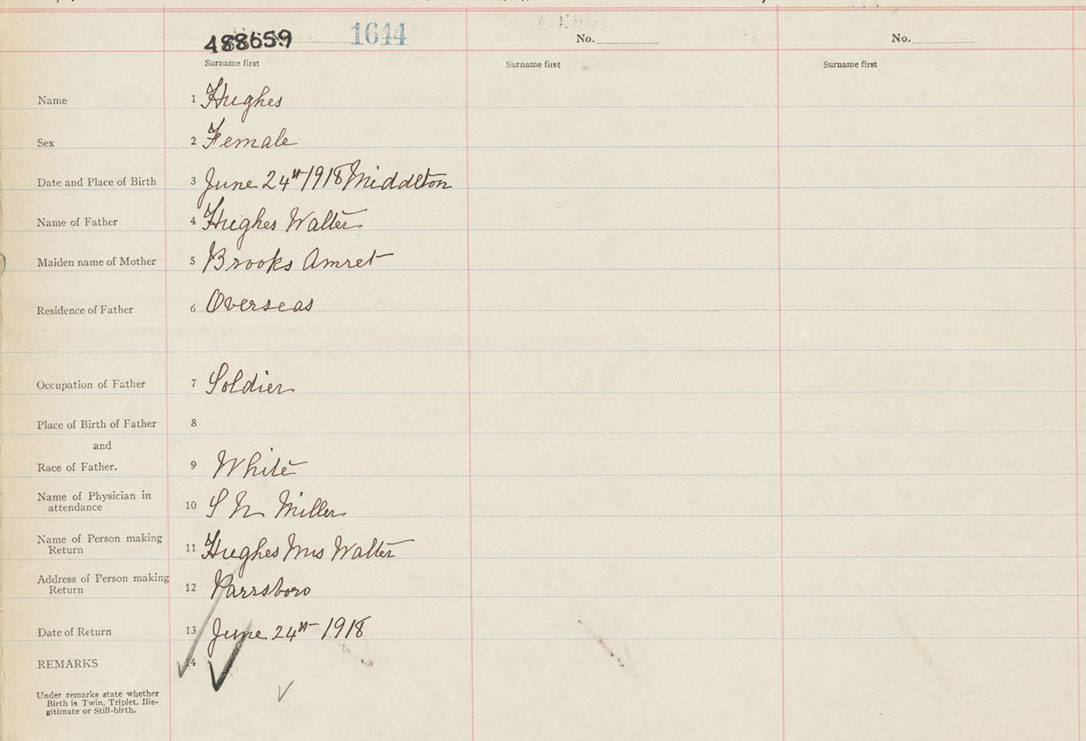 488659 1644 No. No.
Surname first Surname first Surname first
Name 1 Hughes
Sex 2 Female
Date and Place of Birth 3 June 24th 1918 Middlton
Name of Father 4 Hughes Walter
Maiden name of Mother 5 Brooks Amret
Residence of Father 6 Overseas
Occupation of Father 7 Soldier
Place of Birth of Father 8
and
Race of Father. 9 White
Name of Physician in
attendance 10 S N Miller
Name of Person making
Return 11 Hughes Mrs Walter
Address of Person making
Return 12 Parrsboro
Date of Return 13 June 24th 1918
REMARKS 14
Under remarks state whether
Birth is Twin, Triplet, Ille-
gitimate or Still-birth.